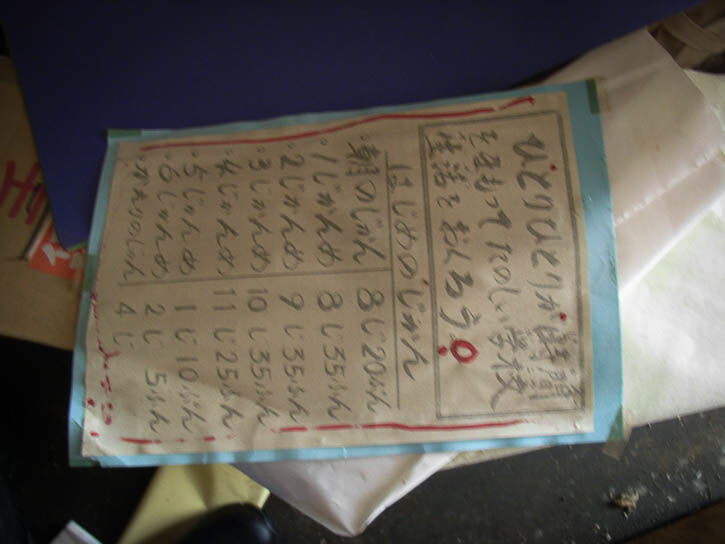 ひとりひとりが時間
をまもってたのしい学校
生活をおくろう!
はじめのじかん
・朝のじかん 8じ20ぷん
・1じかんめ 8じ35ふん
・2じかんめ 9じ35ふん
・3じかんめ 10じ35ふん
・4じかんめ 11じ25ふん
・5じかんめ 1じ10ぷん
・6じかんめ 2じ5ふん
・かえりのじかん 4じ